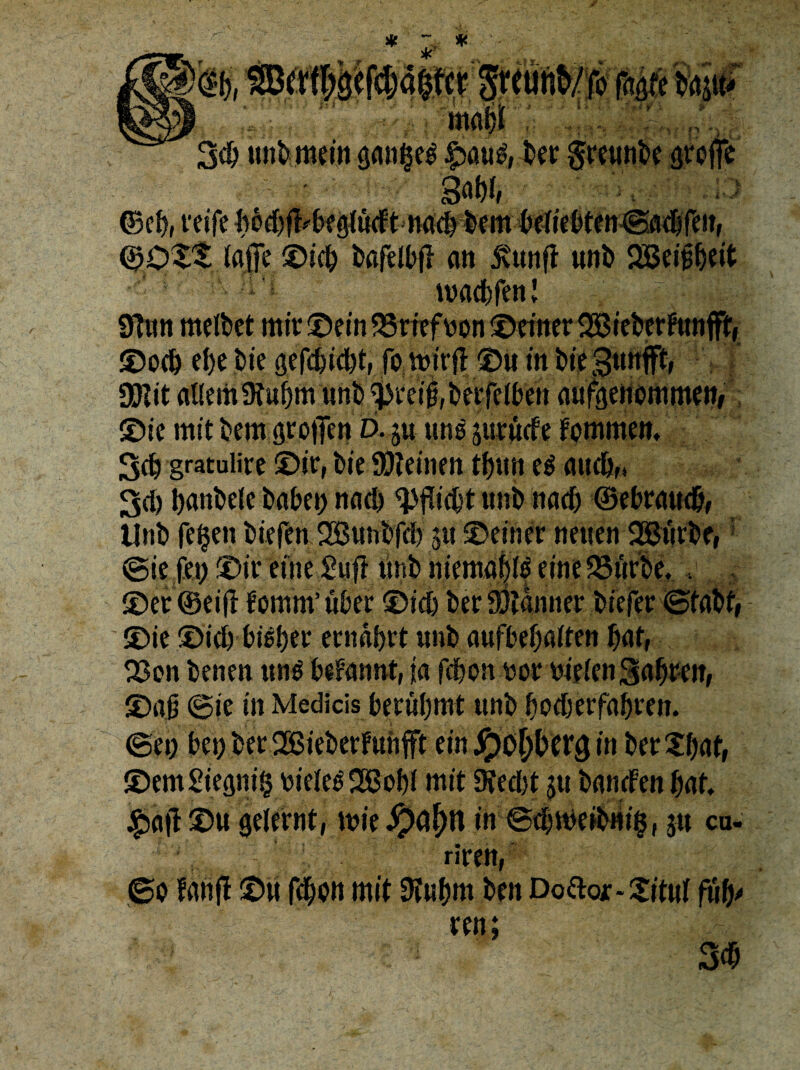 * * *
*
Geh, Werthgeschätzter Freund/ so sagte dazu-
mahl
Ich und mein gantzes Hauß, der Freunde grosse
Zahl,
Geh, reise höchst-beglückt nach dem beliebten Sachsen,
GOTT lasse Dich daselbst an Kunst und Weißheit
wachsen!
Nun meldet mir Dein Brief von Deiner Wiederkunfft,
Doch ehe die geschicht, so wirst Du in die Zunfft,
Mit allem Ruhm und Preiß, derselben aufgenommen,
Die mit dem grossen D. zu uns zurücke kommen.
Ich gratulire Dir, die Meinen thun es auch,
Ich handele dabey nach Pflicht und nach Gebrauch,
Und setzen diesen Wundsch zu Deiner neuen Würde,
Sie sey Dir eine Lust und niemahls eine Bürde.
Der Geist komm' über Dich der Männer dieser Stadt,
Die Dich bisher ernährt und aufbehalten hat,
Von denen uns bekannt, ja schon vor vielen Jahren,
Daß Sie in Medicis berühmt und hocherfahren.
Sey bey der Wiederkunfft ein Hohberg in der That,
Dem Liegnitz vieles Wohl mit Recht zu dancken hat.
Hast Du gelernt, wie Hahn in Schweidnitz, zu cu-
riren,
So kanst Du schon mit Ruhm den Doctor-Titul füh-
ren;
Ich